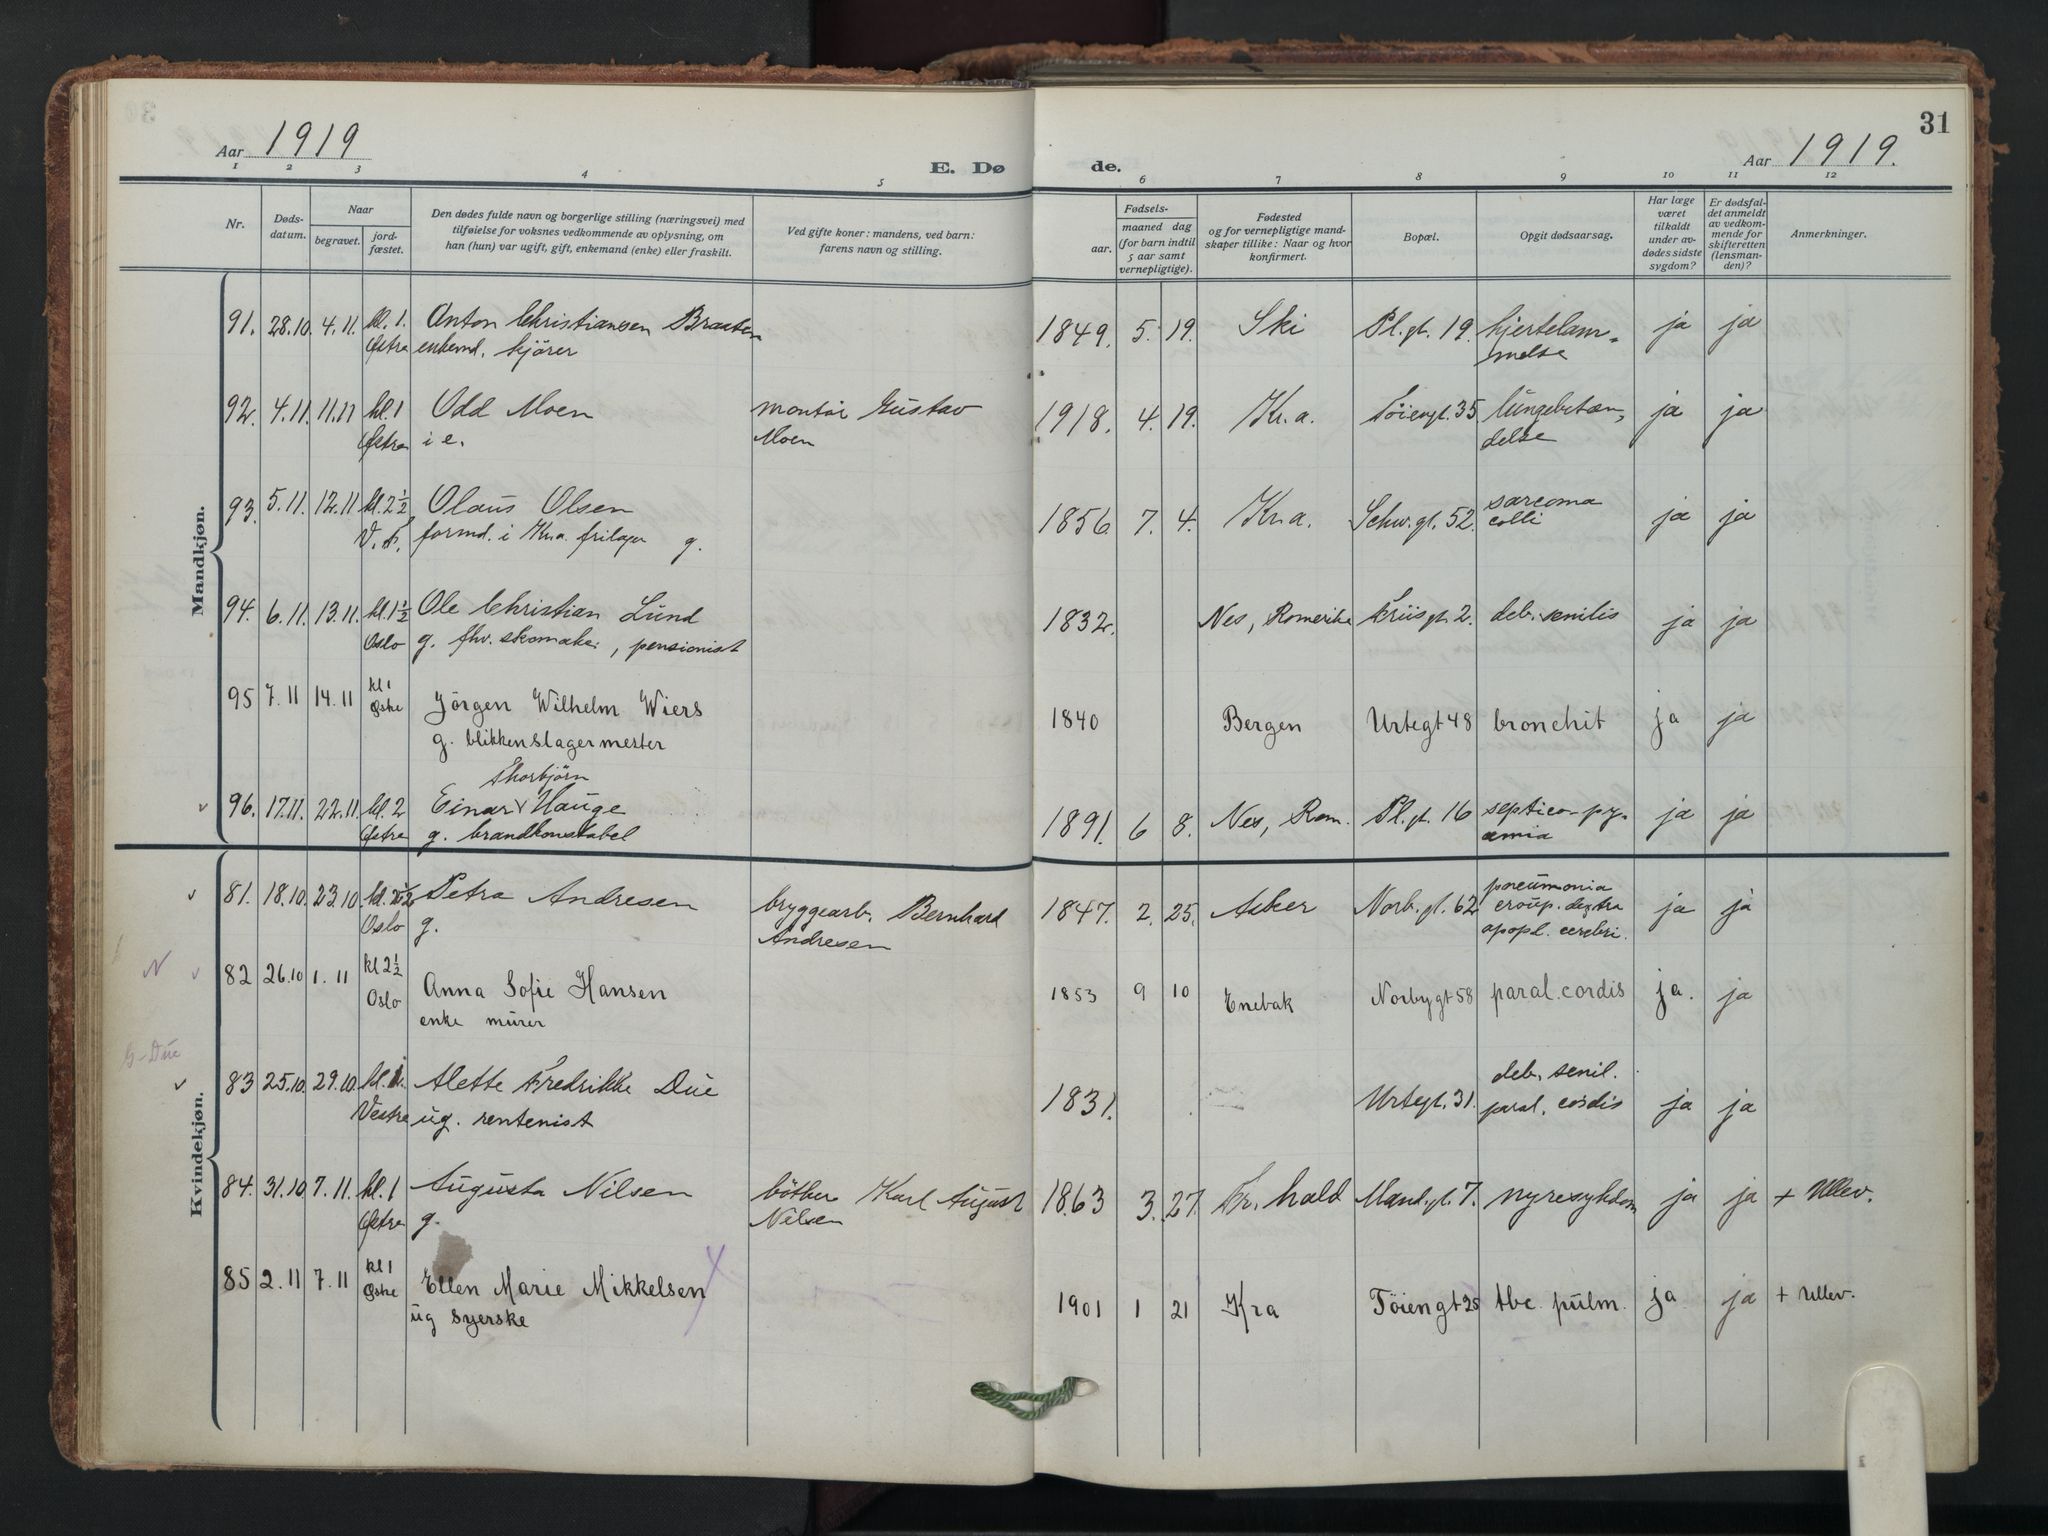 Aar 1919
E. Dø
1 2 3 4 5
Nr.
Døds-
datum.
Naar
begravet.
jord-
fæstet.
Den dødes fulde navn og borgerlige stilling (næringsvei) med
tilføielse for voksnes vedkommende av oplysning, om
han (hun) var ugift, gift, enkemand (enke) eller fraskilt.
Ved gifte koner: mandens, ved barn:
farens navn og stilling.
de.
31
Aar 1919.
6 7 8 9 10 11 12
Fødsels-
aar.
maaned dag
(for barn indtil
5 aar samt
vernepligtige).
Fødested
og for vernepligtige mand-
skaper tillike: Naar og hvor
konfirmert.
Bopæl.
Opgit dødsaarsag.
Har læge
været
tilkaldt
under av-
dødes sidste
sygdom?
Er dødsfal-
det anmeldt
av vedkom-
mende for
skifteretten
(lensman-
den)?
Anmerkninger.
Mandkjøn.
91. 28.10 4.11. kl. 1. Anton Christiansen Braaten 1849. 5. 19. Ski Pl.gt. 19. hjertelam- ja ja
Østre enkemd. kjører melse
92. 4.11. 11.11 kl. 1 Odd Moen montør Gustav 1918. 4. 19. Kr.a. Töiengt. 35 lungebetæn- ja ja
Østre i e. Moen delse
93. 5.11. 12.11 kl. 2½ Olaus Olsen 1856. 7. 4. Kr.a. Schw.gt. 52. sarcoma ja ja
V. F. formd. i Kra. frilager g. colli
94. 6.11. 13.11. kl. 1½ Ole Christian Lund 1832. Nes, Romerike Friisgt. 2. deb. senilis ja ja
Oslo g. fhv. skomaker, pensionist
95 7.11 14.11 kl 1 Jörgen Wilhelm Wiers 1840 Bergen Urtegt 48 bronchit ja ja
Østre g. blikkenslagermester
Thorbjörn
96. 17.11. 22.11 kl. 2 Einar Hauge 1891. 6 8. Nes, Rom. Pl.gt. 16 septico-py- ja ja
Østre g. brandkonstabel æmia
Kvindekjøn.
81. 18.10. 23.10 kl. 2½ Petra Andresen bryggearb. Bernhard 1847. 2. 25. Asker Norb.gt. 62 pneumonia ja ja
Oslo g. Andresen croup. dextra
apopl. cerebri.
N 82 26.10 1.11 kl 2½ Anna Sofie Hansen 1853 9 10 Enebak Norbygt 58 paral. cordis ja. ja
Oslo enke murer
G-Due
83 25.10. 29.10. kl. 1. Alette Fredrikke Due 1831. Urtegt. 31. deb. senil. ja ja
Vestre ug. rentenist paral. cordis
84. 31.10. 7.11. kl. 1 Augusta Nilsen bötker Karl August 1863 3. 27. Fr.hald Mand.gt. 7. nyresykdom ja ja + Ullev.
Østre g. Nilsen
85 2.11 7.11 kl 1 Ellen Marie Mikkelsen 1901 1 21 Kra Töiengt 25 tbc. pulm. ja ja + Ullev.
Østre ug syerske